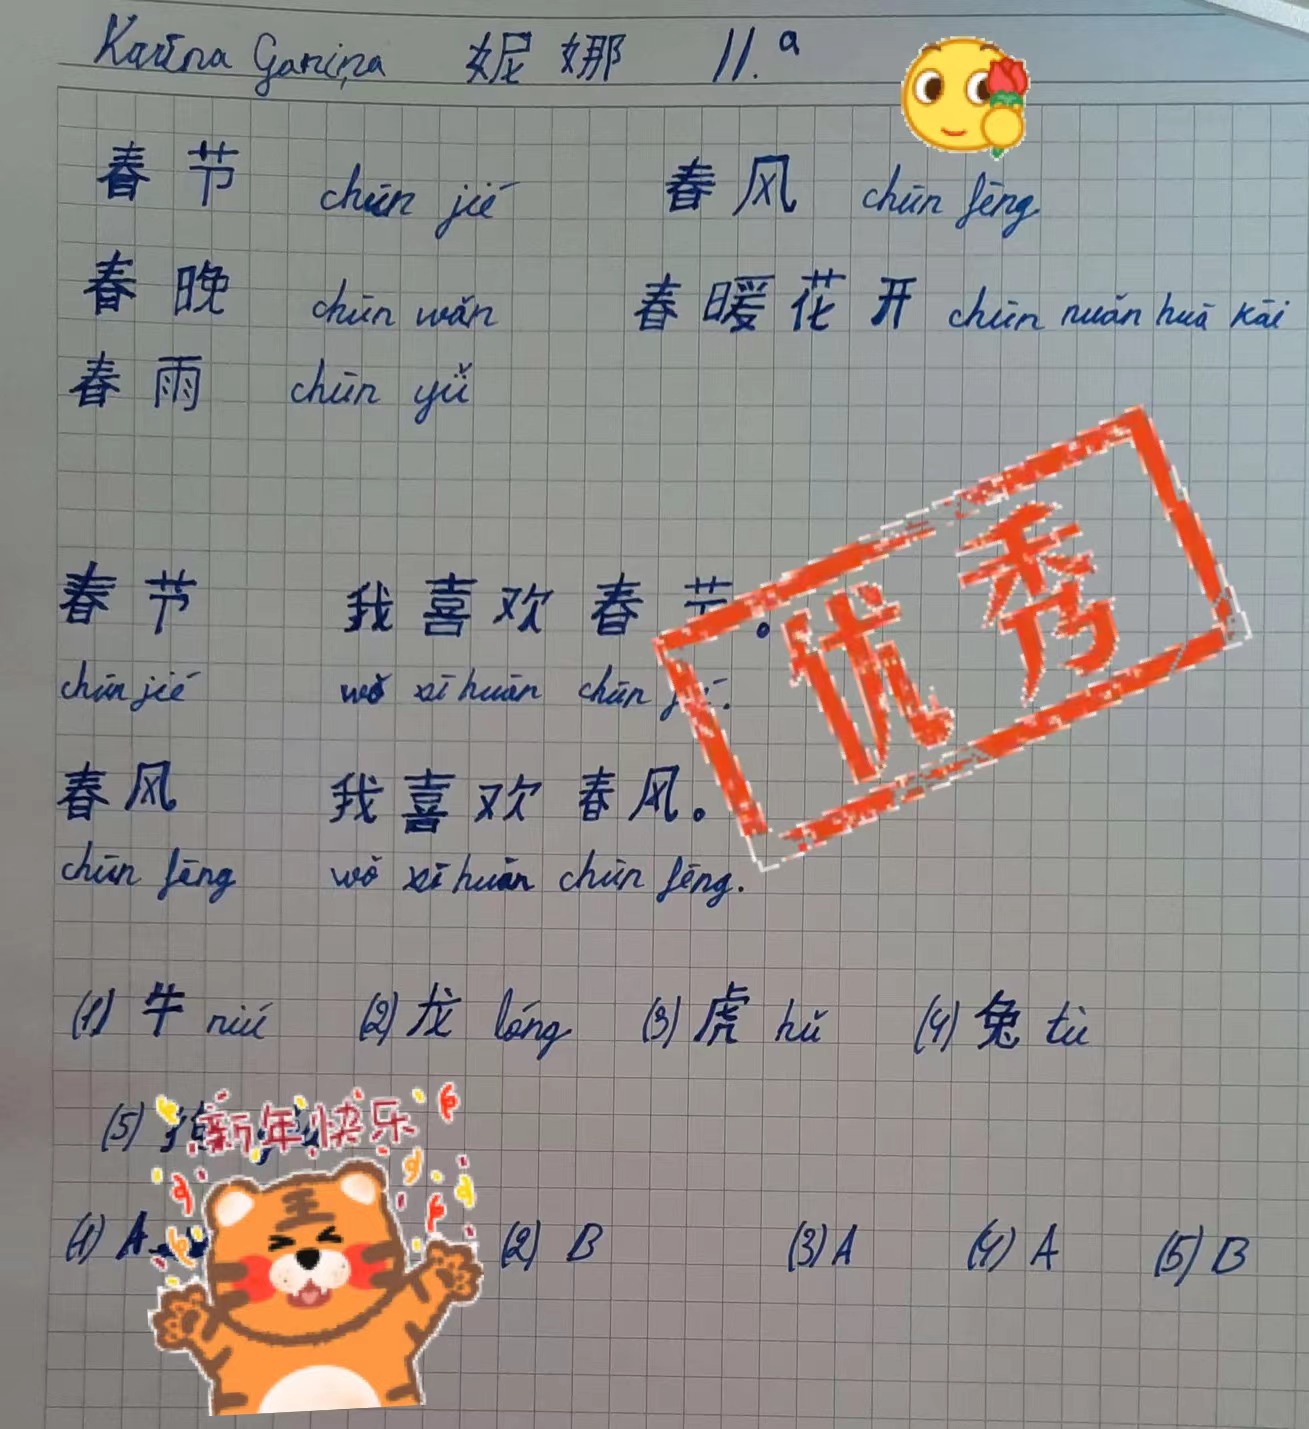 Karīna Ganiņa 妮娜 11.a
春节 chūn jié 春风 chūn fēng
春晚 chūn wǎn 春暖花开 chūn nuǎn huā kāi
春雨 chūn yǚ
春节 我喜欢春节。
chūn jié wǒ xǐ huān chūn jié.
优秀
春风 我喜欢春风。
chūn fēng wǒ xǐ huān chūn fēng.
(1) 牛 niú (2) 龙 lóng (3) 虎 hǔ (4) 兔 tù
(5)
新年快乐
(1) A (2) B (3) A (4) A (5) B